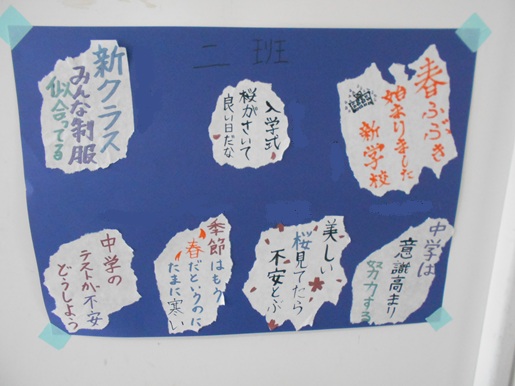 二班
春ふぶき
始まりました
新学校
入学式
桜がさいて
良い日だな
新クラス
みんな制服
似合ってる
中学は
意識高まり
努力する
美しい
桜見てたら
不安とぶ
季節はもう
春だというのに
たまに寒い
中学の
テストが不安
どうしよう